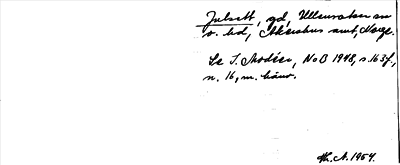 Julsett, gd, Ullensaker sn
o. hd, Akershus amt, Norge.
Se I. Modéer, NoB 1948, s. 163 f,
n. 16, m. hänv.
Th. A. 1954.